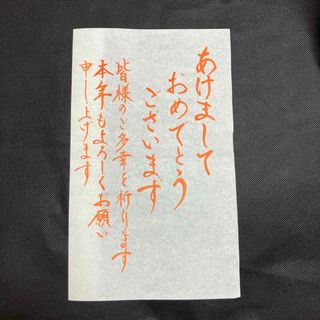 あけまして
おめでとう
ございます
皆様のご多幸を祈ります
本年もよろしくお願い
申し上げます